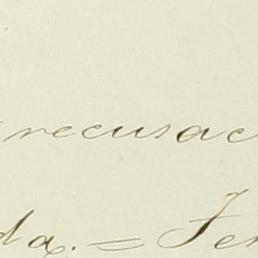 recusac
da. = Fer